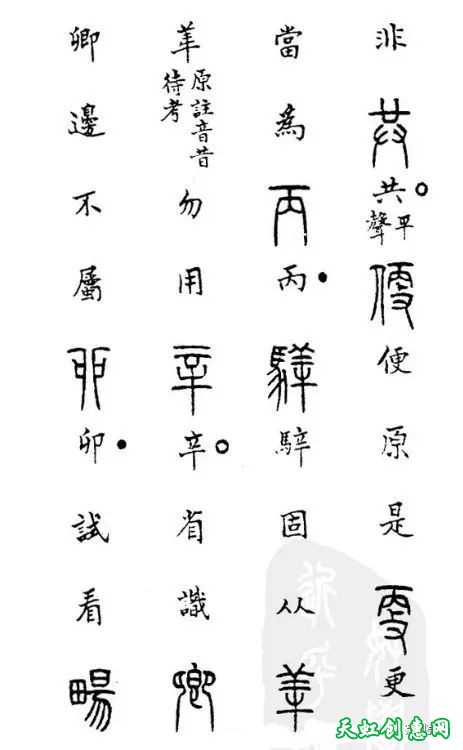 非共共平聲便便原是更更
當為丙丙騂騂固从
原註音昔待考勿用辛辛省識卿
卿邊不屬卯卯試看畼
天虹创意网